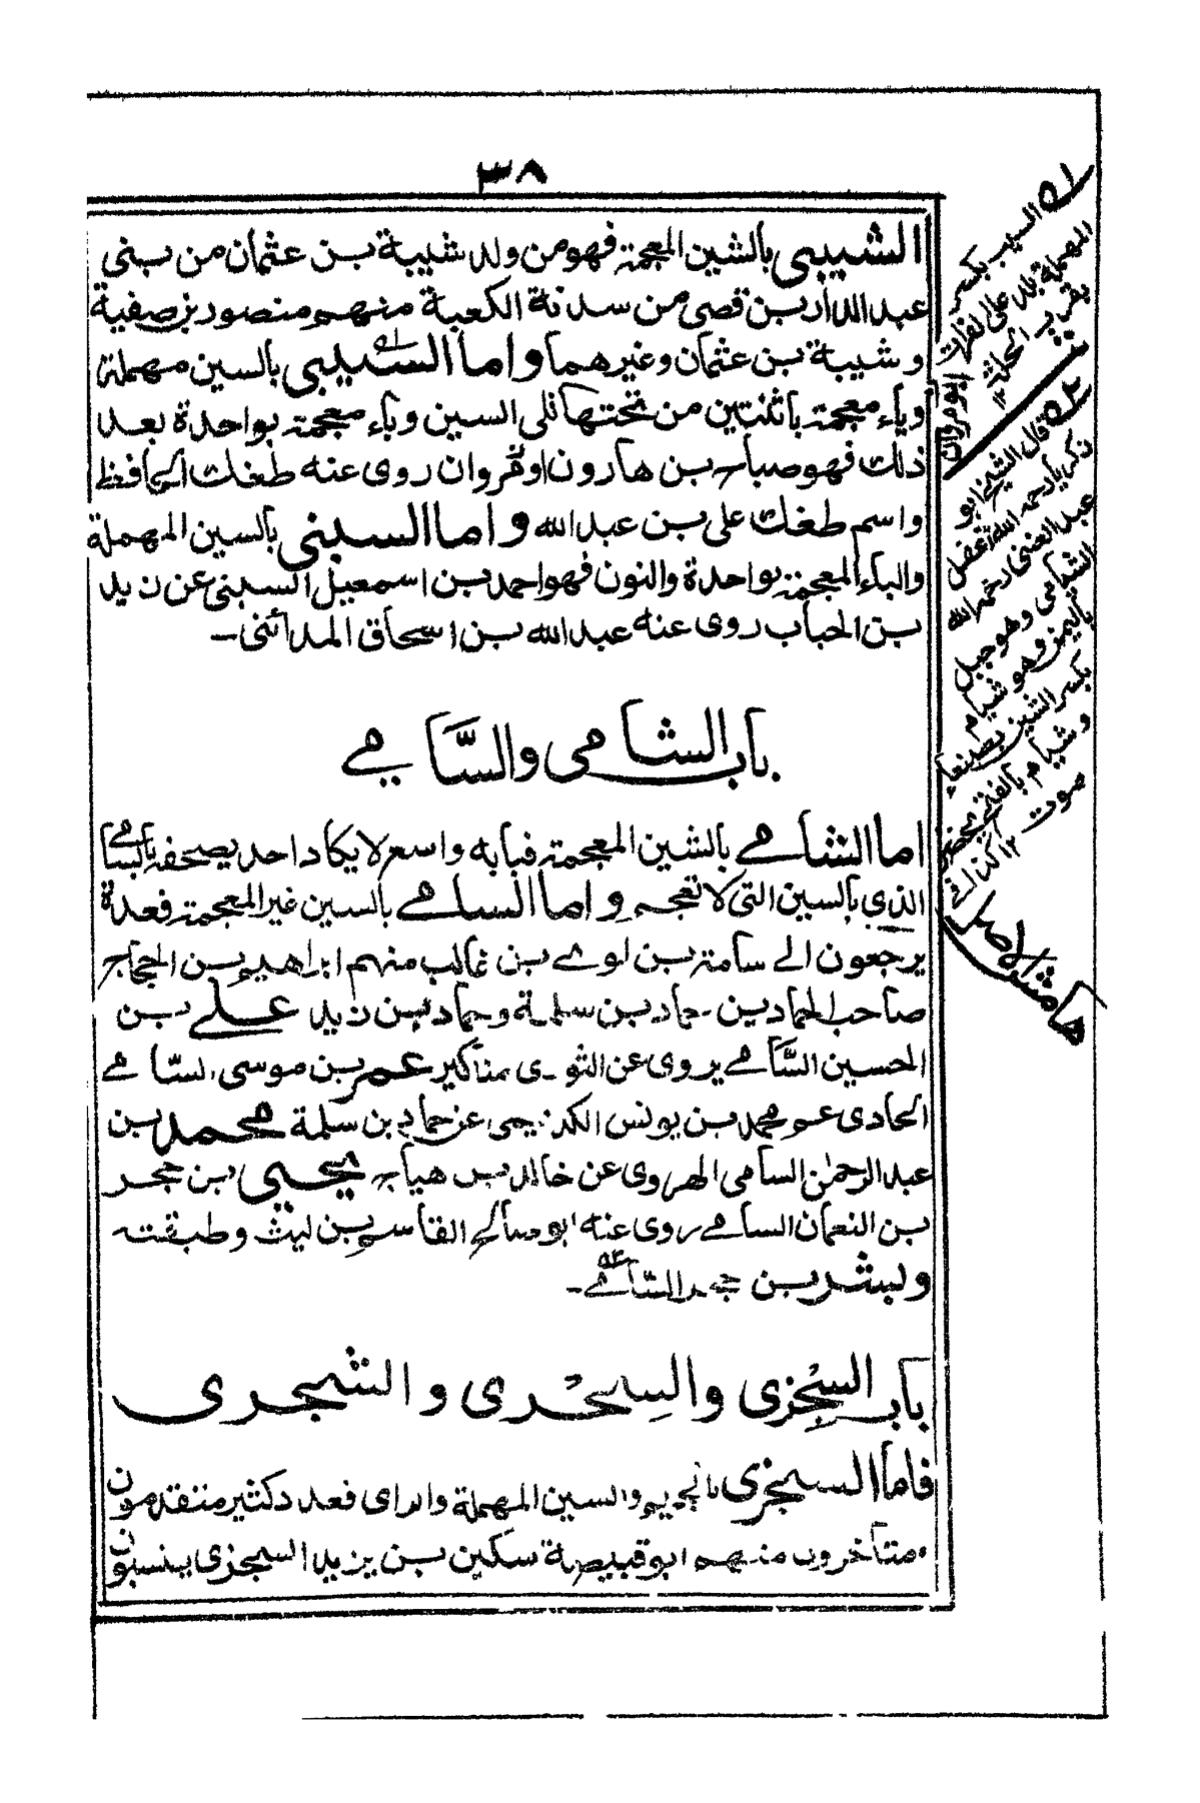 ٣٨
الشيبي بالشين المعجمة فهو من ولد شيبة بن عثمان من بني
عبد الدار بن قصى من سدنة الكعبة منهم منصور بن صفية
و شيبة بن عثمان وغيرهما واما السيبي بالسين مهملة
وياء معجمة باثنتين من تحتها تلى السين وباء معجمة بواحدة بعد
ذلك فهو صباح بن هارون او مروان روى عنه طغك الحافظ
واسم طغك على بن عبد الله واما السبنى بالسين المهملة
والباء المعجمة بواحدة والنون فهو احمد بن اسمعيل السبنى عن زيد
بن الحباب روى عنه عبد الله بن اسحاق المدائنى -
باب الشامى والسَّامي
اما الشامے بالشين المعجمة فبابه واسع لا يكاد احد يصحفه بالسامے
الذي بالسين التى لا تعجم واما السامے بالسين غير المعجمة فعدة
يرجعون الے سامة بن لوے بن غالب منهم ابراهيم بن الحجاج
صاحب الحمادين حماد بن سلمة وحماد بن زيد علے بن
الحسين السَّامے يروى عن الثورى مناكير عمر بن موسى السّامے
الحادى عم محمد بن يونس الكديمى عن حماد بن سلمة محمد بن
عبد الرحمٰن السامى الهروى عن خالد بن هياج يحيى بن حجر
بن النعمان السامے روى عنه ابو صالح القاسم بن ليث وطبقته
وبشر بن السّامے -
باب السِجْزى والسِحْرى والشجرى
فاما السجزى بالجيم والسين المهملة والزاى فعدد كثير متقدمون
ومتأخرون منهم ابو قبيصة سكين بن يزيد السجزى ينسبون
١ه السيب بكسر
المهملة بلد على الفرات
بقرب الحلة ١٢
ابو مروان
٢ه قال الشيخ ابو
زكريا رحمه الله اغفل
عبد الغنى رحمه الله
الشبامى وهو جبل
باليمن وهو شبام
بكسر الشين بصنعاء
وشبام بالفتح بحضر
موت ١٢ كذا فے
هامش الاصل